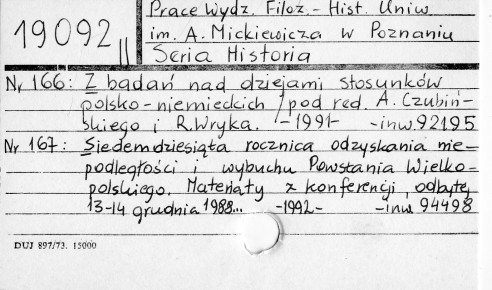 Prace Wydz. Filoz.-Hist. Uniw.
19092 II
im. A. Mickiewicza w Poznaniu
Seria Historia
Nr 166: Z badań nad dziejami stosunków
polsko-niemieckich / pod red. A. Czubiń-
skiego i R. Wryka. -1991- -inw. 92195
Nr 167: Siedemdziesiąta rocznica odzyskania nie-
podległości i wybuchu Powstania Wielko-
polskiego. Materiały z konferencji, odbytej
13-14 grudnia 1988... -1992- -inw. 94498
DUJ 897/73. 15000